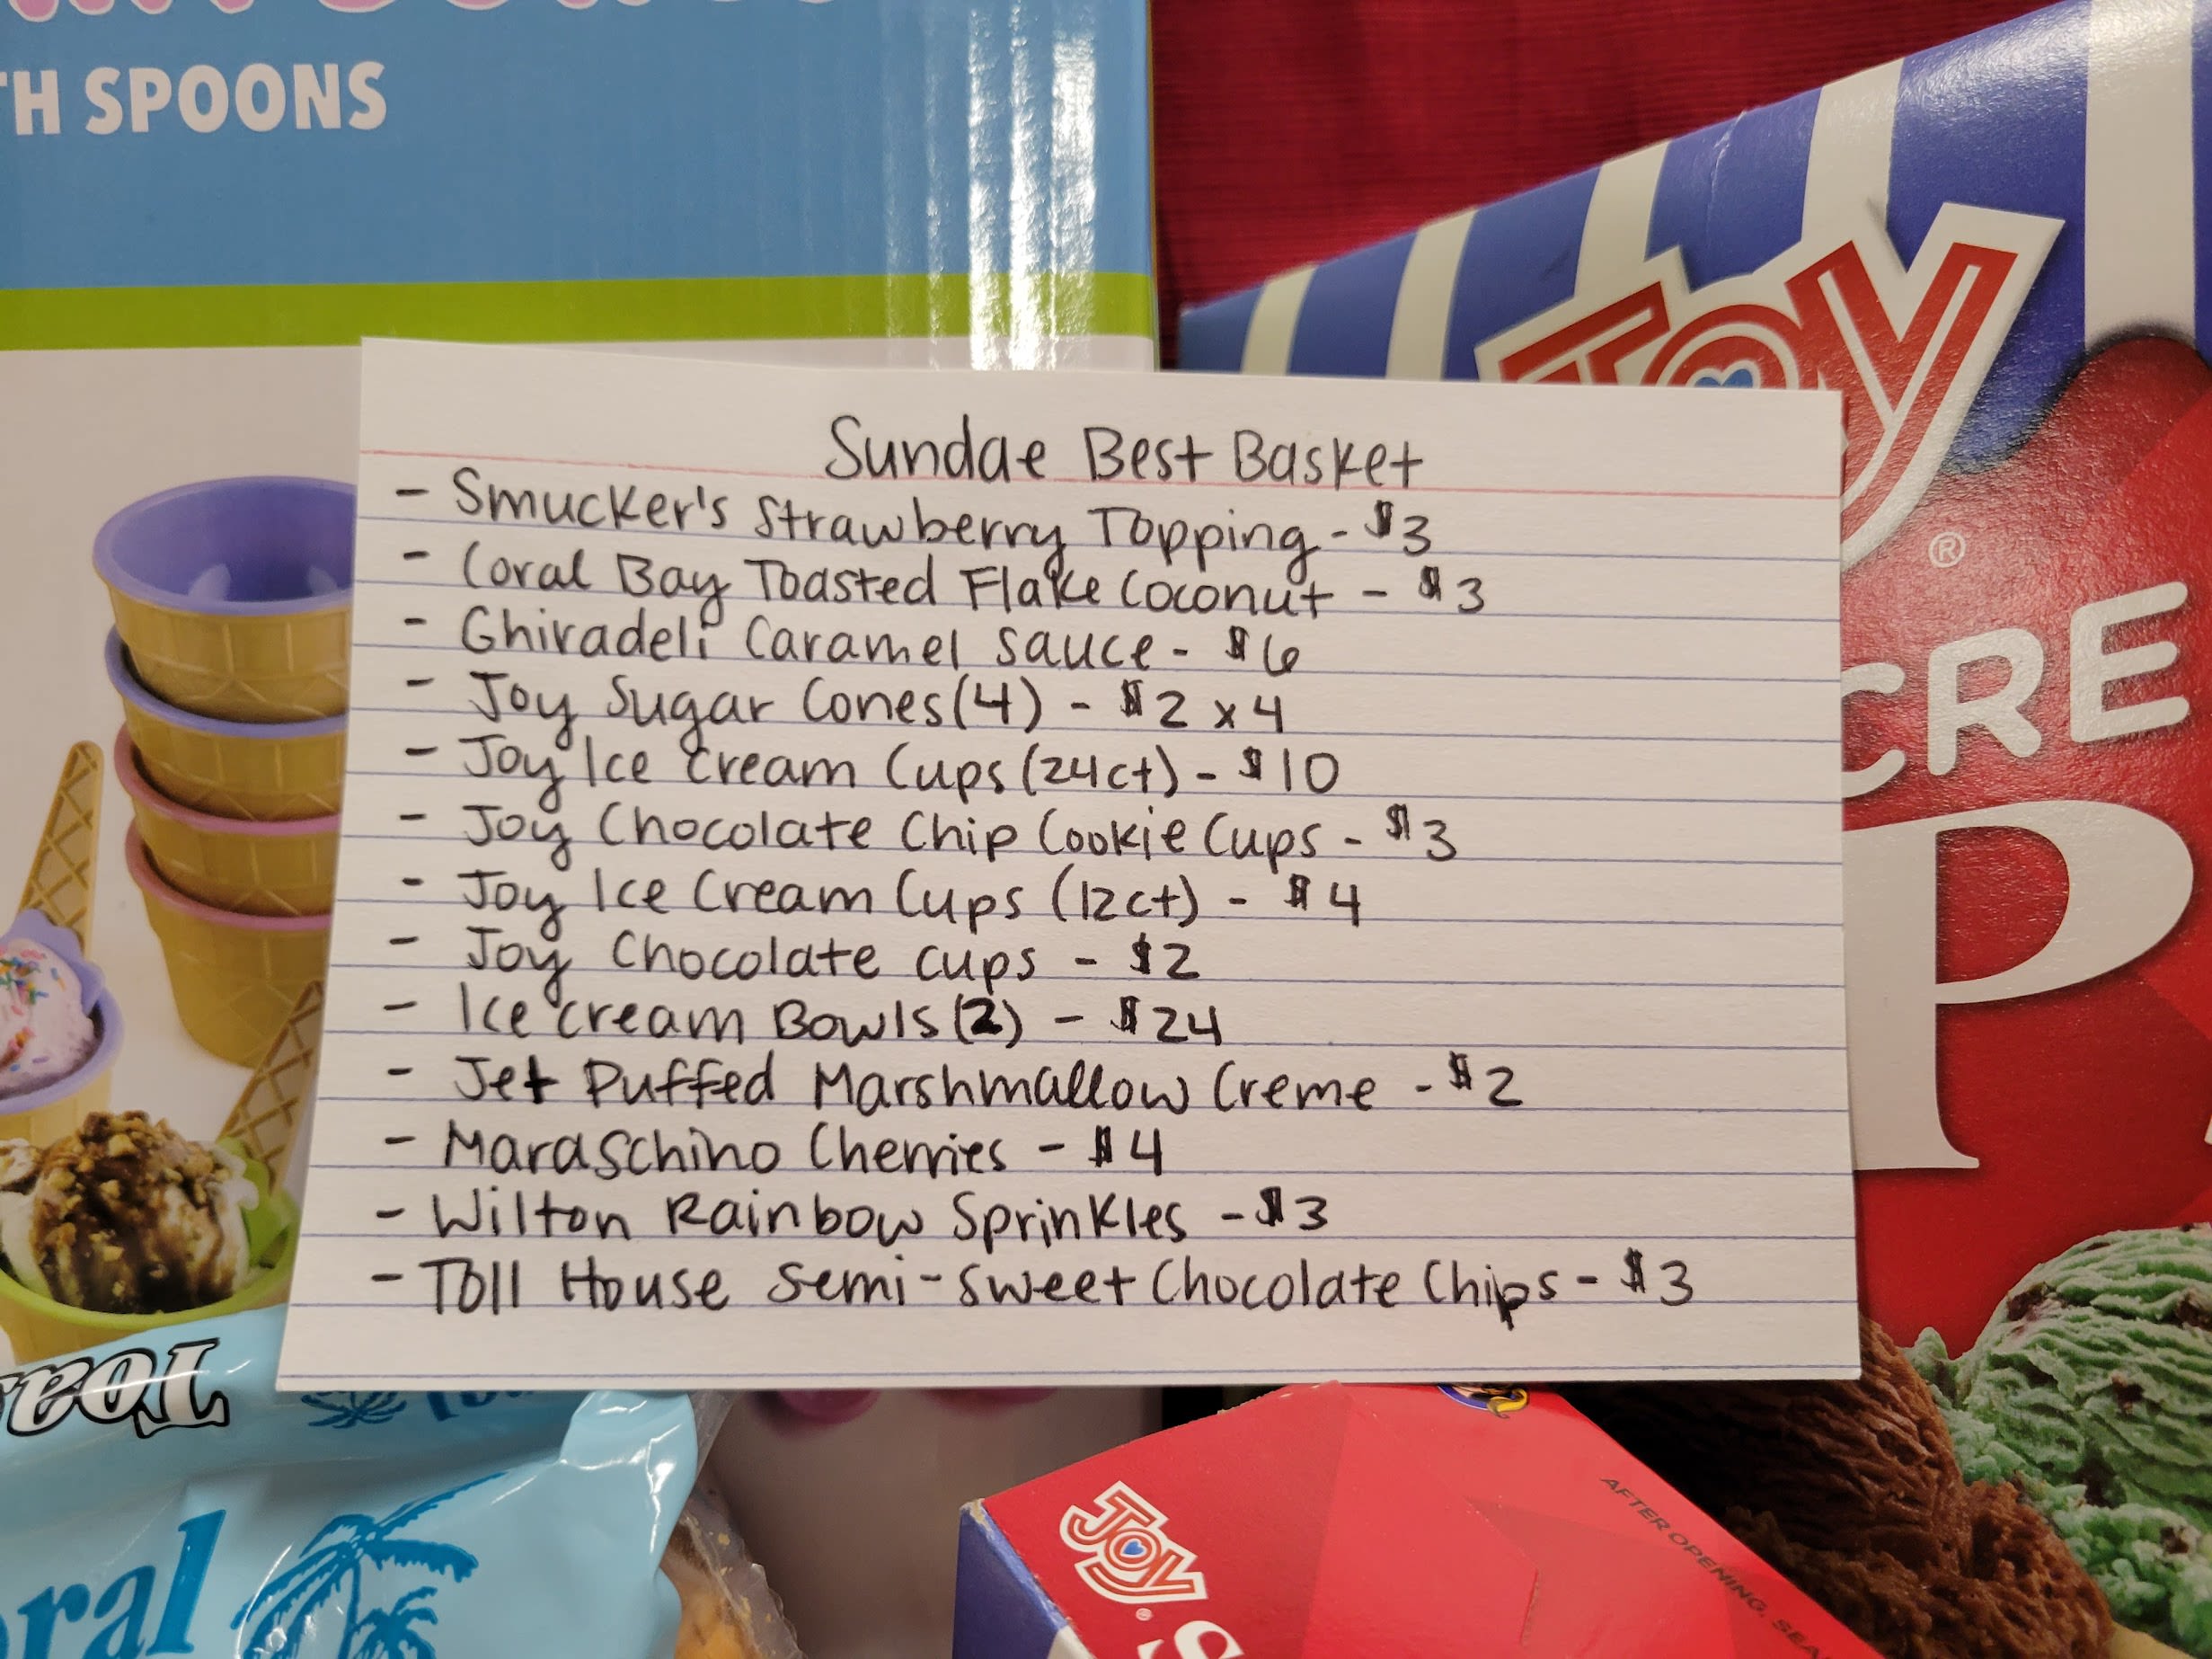 TH SPOONS
JOY
®
CRE
P
Sundae Best Basket
- Smucker's Strawberry Topping - $3
- Coral Bay Toasted Flake Coconut - $3
- Ghiradeli Caramel Sauce - $6
- Joy Sugar Cones (4) - $2 x 4
- Joy Ice Cream Cups (24ct) - $10
- Joy Chocolate Chip Cookie Cups - $3
- Joy Ice Cream Cups (12ct) - $4
- Joy Chocolate Cups - $2
- Ice Cream Bowls (2) - $24
- Jet Puffed Marshmallow Creme - $2
- Maraschino Cherries - $4
- Wilton Rainbow Sprinkles - $3
- Toll House Semi-Sweet Chocolate Chips - $3
Toa
oral
JOY
S
AFTER OPENING, SEA